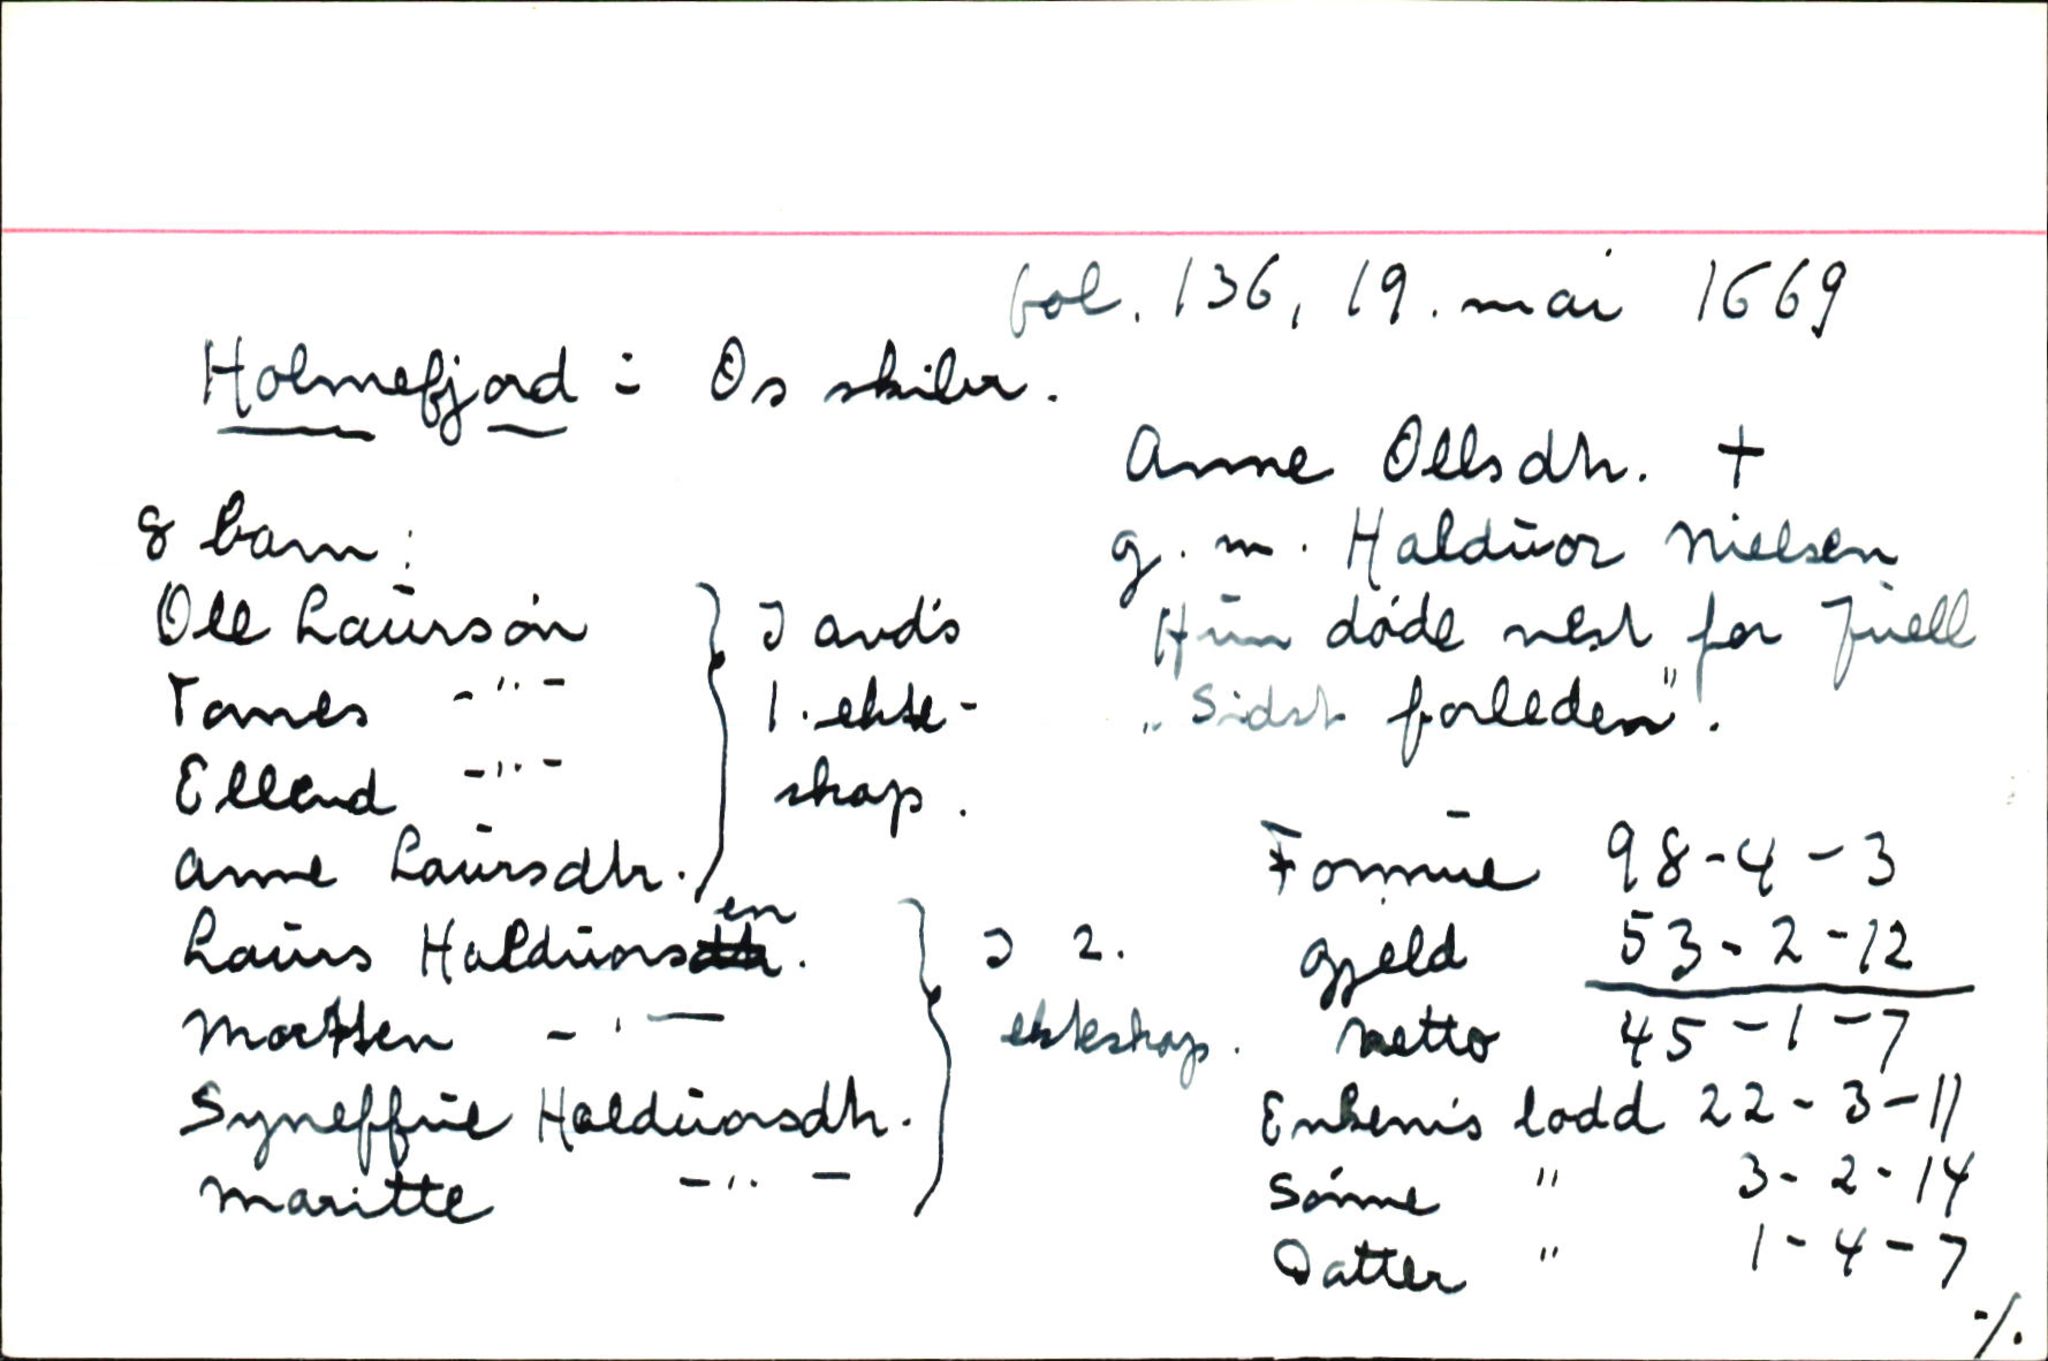 fol. 136, 19. mai 1669
Holmefjord i Os skibr.
Anne Ollsdtr. +
g. m. Halduor Nielsen
Hun døde nest for Juell
"Sidst forleden".
8 barn:
Ole Laursøn
Tomes -"-
Ellend -"-
Anne Laursdtr.
I avd's
1. ekte-
skap.
Laurs Halduorsen.
Mortten -"-
Syneffue Halduorsdtr.
Maritte -"-
I 2.
ekteskap.
Formue 98-4-3
Gjeld 53-2-12
Netto 45-1-7
Enkem's lodd 22-3-11
Sønne " 3-2-14
Datter " 1-4-7
./.